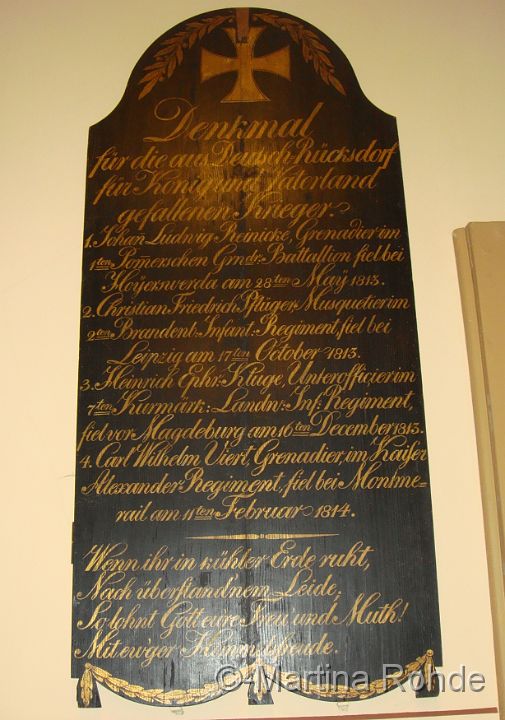 Denkmal
für die aus Deutsch-Rücksdorf
für König und Vaterland
gefallenen Krieger.
1. Johan Ludwig Reinicke, Grenadier im
1ten Pom̅erschen Grndr. Battallion fiel bei
Hoyerswerda am 28ten Maÿ 1813.
2. Christian Friedrich Pflüger, Musquetier im
2ten Brandenb: Infant: Regiment, fiel bei
Leipzig am 17ten October 1813.
3. Heinrich Ephr: Kluge, Unterofficier im
7ten Kurmärk: Landw: Inf: Regiment,
fiel vor Magdeburg am 16ten December 1813.
4. Carl Wilhelm Viert, Grenadier, im Kaiser
Alexander-Regiment, fiel bei Montme=
rail am 11ten Februar 1814.
Wenn ihr in kühler Erde ruht,
Nach überstandnem Leide;
So lohnt Gott eure Treu und Muth!
Mit ew'ger Himmelsfreude.
© Martina Rohde